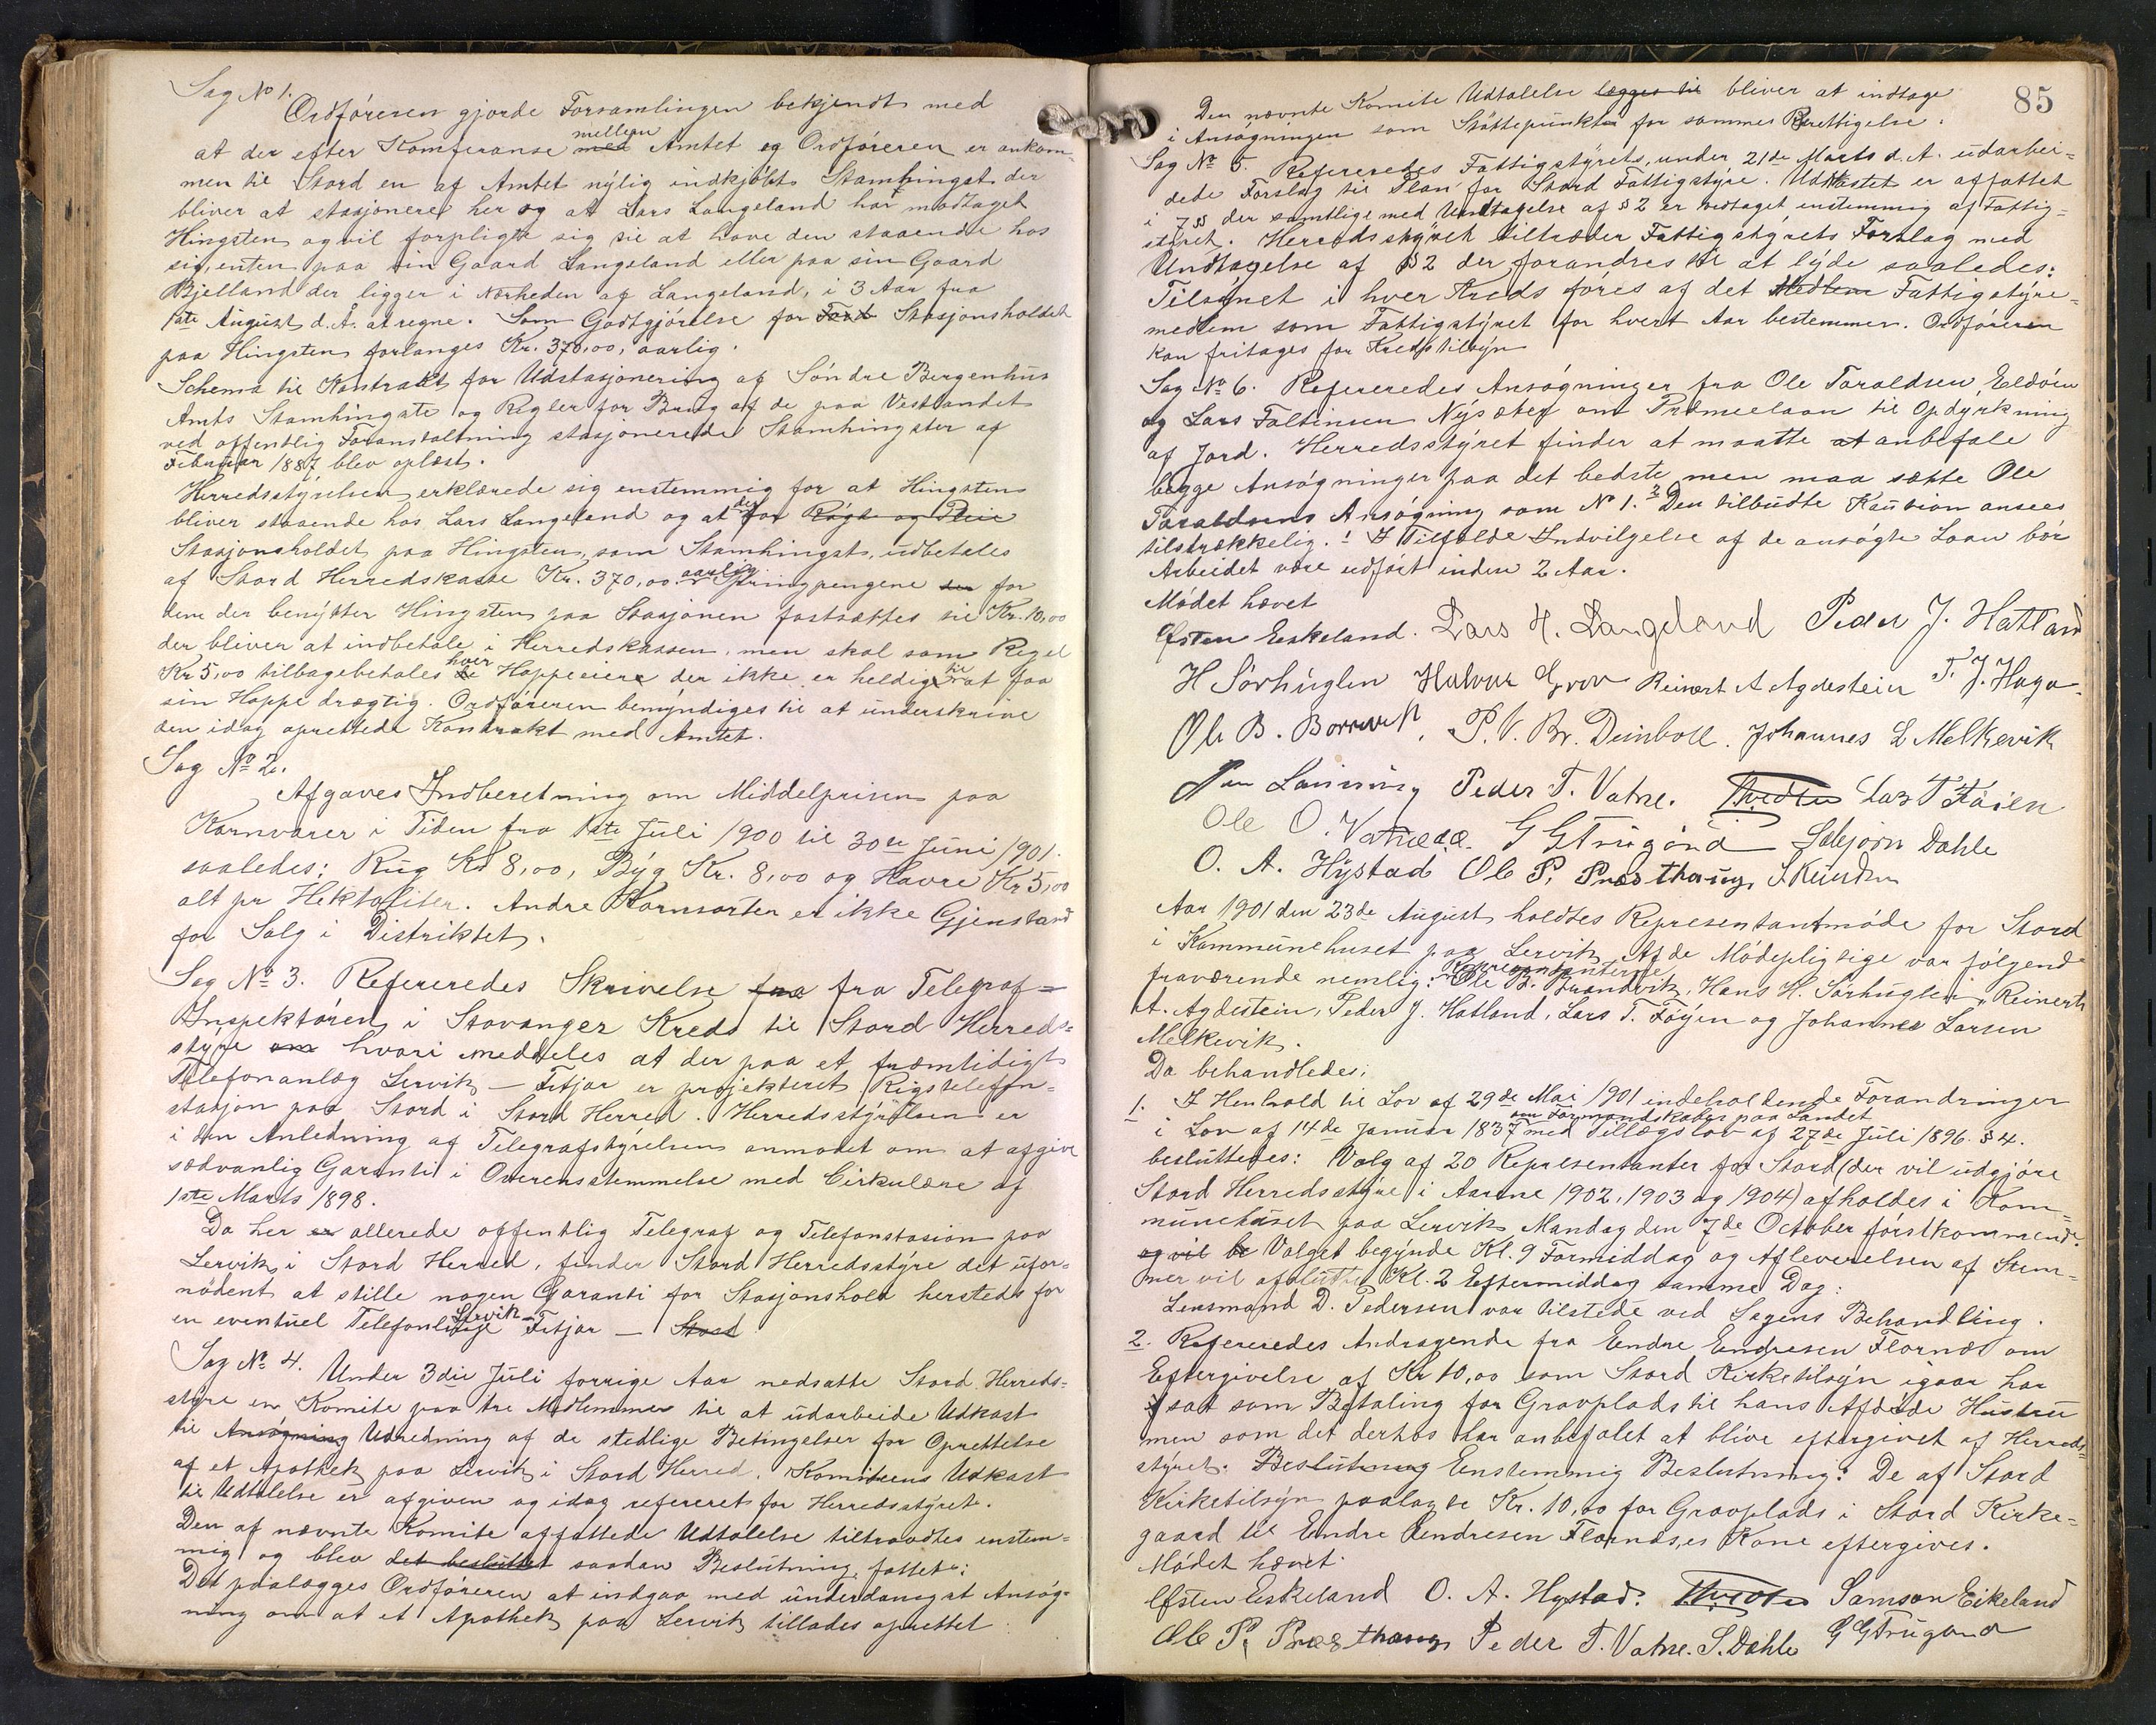 Sag No 1.
Ordføreren gjorde Forsamlingen bekjendt med
at der efter Konferanse med mellem Amtet og Ordføreren er ankom-
men til Stord en af Amtet nylig indkjøbt Stamhingst der
bliver at stasjonere her og at Lars Langeland har modtaget
Hingsten og vil forpligte sig til at have den staaende hos
sig, enten paa sin Gaard Langeland eller paa sin Gaard
Bjelland der ligger i Nærheden af Langeland, i 3 Aar fra
1ste August d.A. at regne. Som Godtgjørelse for Stasjonsholdet
paa Hingsten forlanges Kr. 370,00, aarlig.
Schema til Kontrakt for Udstasjonering af Søndre Bergenhus
Amts Stamhingste og Regler for Brug af de paa Vestlandet
ved offentlig Foranstaltning stasjonerede Stamhingster af
Februar 1887 blev oplæst.
Herredsstyrelsen erklærede sig enstemmig for at Hingsten
bliver staaende hos Lars Langeland og at der for Røgt og Pleie
Stasjonsholdet paa Hingsten, som Stamhingst, udbetales
af Stord Herredskasse Kr. 370,00 aarlig. Springpengene for
dem der benytter Hingsten paa Stasjonen fastsættes til Kr. 10,00
der bliver at indbetale i Herredskassen, men skal som Regel
Kr 5,00 tilbagebetales hver Hoppeeiere der ikke er heldige til at faa
sin Hoppe drægtig. Ordføreren bemyndiges til at underskrive
den idag oprettede Kontrakt med Amtet.
Sag No 2.
Afgaves Indberetning om Middelprisen paa
Kornvarer i Tiden fra 1ste Juli 1900 til 30te Juni 1901
saaledes: Rug Kr 8,00, Byg Kr. 8,00 og Havre Kr 5,00
alt pr Hektoliter. Andre Kornsorter er ikke Gjenstand
for Salg i Distriktet.
Sag No 3. Refereredes Skrivelse fra fra Telegraf=
Inspektøren i Stavanger Kreds til Stord Herreds=
styre om hvori meddeles at der paa et fræmtidigt
Telefonanlæg Lervik – Fitjar er projekteret Rigstelefon=
stasjon paa Stord i Stord Herred. Herredsstyrelsen er
i den Anledning af Telegrafstyrelsen anmodet om at afgive
sædvanlig Garanti i Overensstemmelse med Cirkulære af
1ste Marts 1898.
Da her er allerede offentlig Telegraf og Telefonstasion paa
Lervik i Stord Herred, finder Stord Herredsstyre det ufor=
nødent at stille nogen Garanti for Stasjonshold herstedes for
en eventuel Telefonlinje Lervik – Fitjar – Stord
Sag No 4. Under 3die Juli forrige Aar nedsatte Stord Herreds=
styre en Komite paa tre Medlemmer til at udarbeide Udkast
til Ansøgning Udredning af de stedlige Betingelser for Oprettelse
af et Apothek paa Lervik i Stord Herred. Komiteens Udkast
til Udtalelse er afgiven og idag refereret for Herredsstyret.
Den af nævnte Komite affattede Udtalelse tiltraadtes enstem=
mig og blev det besluttet saadan Beslutning fattet:
Det paalægges Ordføreren at indgaa med underdanigst Ansøg=
ning om at et Apothek paa Lervik tillades oprettet
85
Den nævnte Komite Udtalelse lægges til bliver at indtage
i Ansøgningen som Støttepunkt for sammes Berettigelse.
Sag No 5. Refereredes Fattigstyrets, under 21de Marts d.A. udarbei=
dede Forslag til Plan for Stord Fattigstyre. Udkastet er affattet
i 7 §§ der samtlige med Undtagelse af § 2 er vedtaget enstemmig af Fattig=
styret. Herredsstyret tiltræder Fattigstyrets Forslag med
Undtagelse af § 2 der forandres til at lyde saaledes:
Tilsynet i hver Kreds føres af det Medlem Fattigstyre=
medlem som Fattigstyret for hvert Aar bestemmer. Ordføreren
kan fritages for Kredstilsyn
Sag No 6. Refereredes Ansøgninger fra Ole Taraldsen Eldøen
og Lars Faltinsen Nysæter om Præmielaan til Opdyrkning
af Jord. Herredsstyret finder at maatte at anbefale
begge Ansøgninger paa det bedste men maa sætte Ole
Taraldsens Ansøgning som No 1. Den tilbudte Kaution ansees
tilstrækkelig. I Tilfælde Indvilgelse af de ansøgte Laan bør
Arbeidet være udført inden 2 Aar.
Mødet hævet
Østen Eskeland. Lars H. Langeland Peder J. Hatland
H Sørhuglen Halvor Grov Reinert A Agdestein T. J. Haga.
Ole B. Borrevik. P. V. Br. Deinboll. Johannes L Melkevik
Peder T. Vatne. Lars T Føien
Ole O. Vatne G G Trugønd Sebjørn Dahle
O. A. Hystad Ole P. Præsthaug
Aar 1901 den 23de August holdtes Representantmøde for Stord
i Kommunehuset paa Lervik. Af de Mødepligtige var følgende
fraværende nemlig: Representanterne Ole B. Brandvik, Hans H. Sørhuglen, Reinert
A. Agdestein, Peder J. Hatland, Lars T. Føyen og Johannes Larsen
Melkevik.
Da behandledes:
1. I Henhold til Lov af 29de Mai 1901 indeholdende Forandringer
i Lov af 14de Januar 1837 om Formandskaber paa Landet med Tillægslov af 27de Juli 1896 § 4.
besluttedes: Valg af 20 Representanter for Stord (der vil udgjøre
Stord Herredsstyre i Aarene 1902, 1903 og 1904) afholdes i Kom=
munehuset paa Lervik Mandag den 7de October førstkommende.
og vil be Valget begynde Kl. 9 Formiddag og Afleverelsen af Stem=
mer vil afslutte Kl. 2 Eftermiddag samme Dag.
Lensmand D. Pedersen var tilstede ved Sagens Behandling.
2. Refereredes Andragende fra Endre Endresen Flornæs om
Eftergivelse af Kr 10,00 som Stord Kirketilsyn igaar har
sat som Betaling for Gravplads til hans Afdøde Hustru
men som det derhos har anbefalet at blive eftergivet af Herreds=
styret. Beslutning Enstemmig Beslutning: De af Stord
Kirketilsyn paalagde Kr. 10,00 for Gravplads i Stord Kirke=
gaard til Endre Endresen Flornæs,es Kone eftergives.
Mødet hævet.
Østen Eskeland O. A. Hystad. Samson Eikeland
Ole P. Præsthaug Peder T. Vatne. S. Dahle G G Trugønd